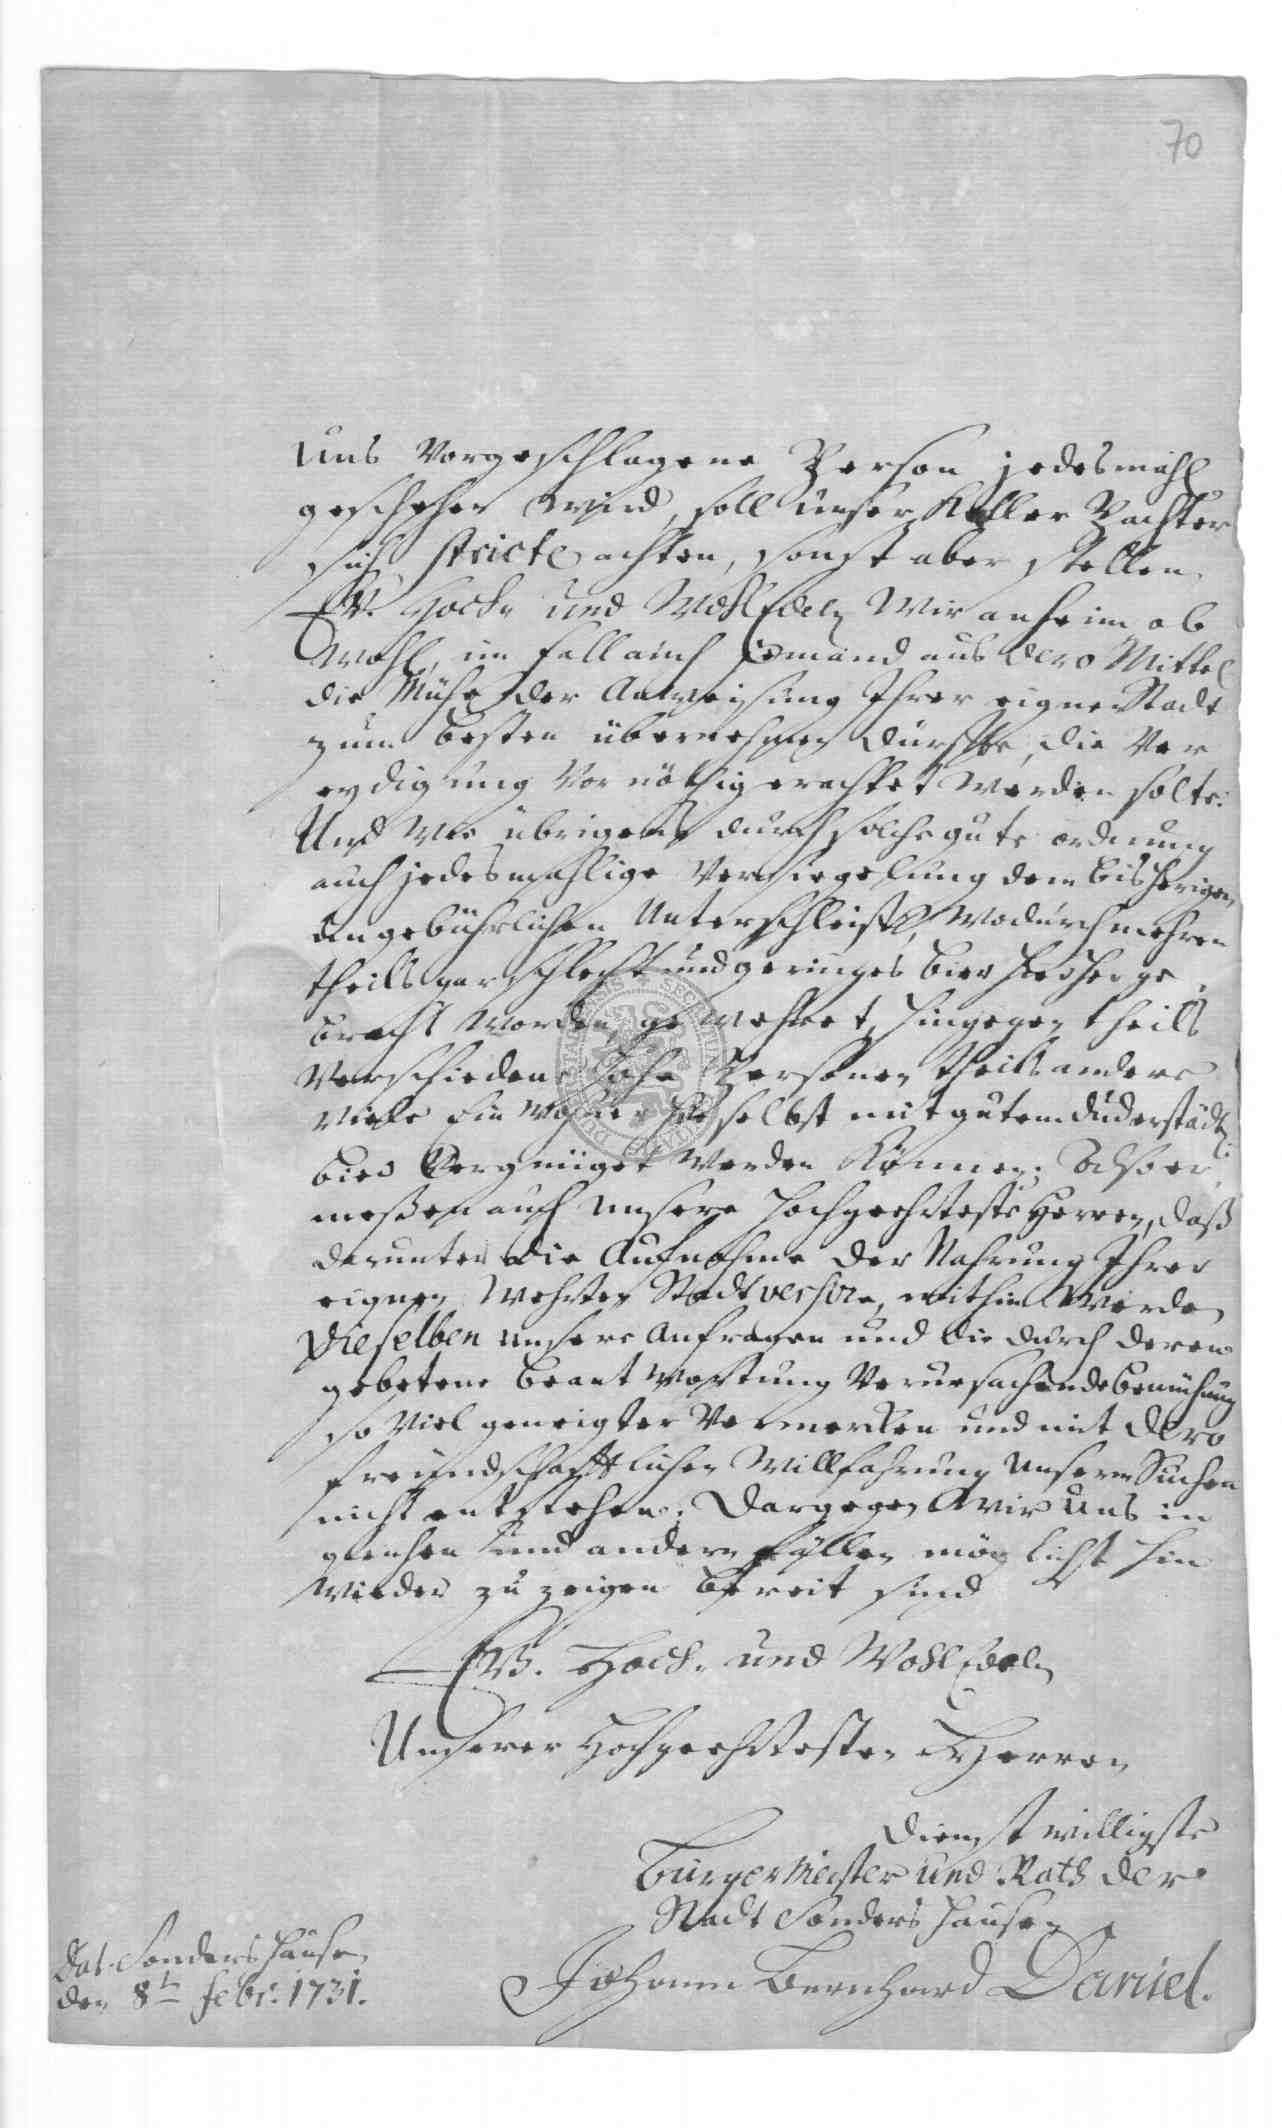 70
uns Vorgeschlagene Person jedesmahl
geschehen wird, soll unser Keller Pachter
sich stricte achten, sonst aber stellen
Ew. Hoch- und WohlEdeln Wir anheim ob
Wohl, im fall auch Jemand aus dero Mittel
die Mühe der Anweysung Ihrer eignen Stadt
zum besten übernehmen dürffte, die Ver
eydigung vor nöthig erachtet werden solte.
Und Wie übrigens durch solche gute ordnung
auch jedesmahlige Versiegelung dem bisherigen
ungebührlichen Unterschleiff, Wodurch mehren
theils gar schlecht und geringes bier hierher ge
bracht worden, gewehret, hingegen theils
Verschiedene hohe Personen theils andere
Viele Einwohner hieselbst mit gutem duderstädt.
bier Vergnüget werden Können; Also er
meßen auch unsere Hochgeehrteste Herren, daß
darunter die Aufnahme der Nahrung Ihrer
eignen Wehrten Stadt versire, mithin Werden
Dieselben unsere Anfragen und die durch deren
gebetene beantwortung Verursachende bemühung
so Viel geneigter Vermercken und mit dero
freundschafftlichen Willfahrung unserm Suchen
nicht entstehen; Dargegen Wir uns in
gleichen und andern fällen möglichst hin
wieder zu zeigen bereit sind
Ew. Hoch- und WohlEdeln
Unserer Hochgeehrtesten Herren
dienstwilligste
Bürgermeister und Rath der
Stadt Sondershausen
Johann Bernhard Daniel.
Dat. Sondershausen
den 8t. Febr: 1731.
SECRETUM